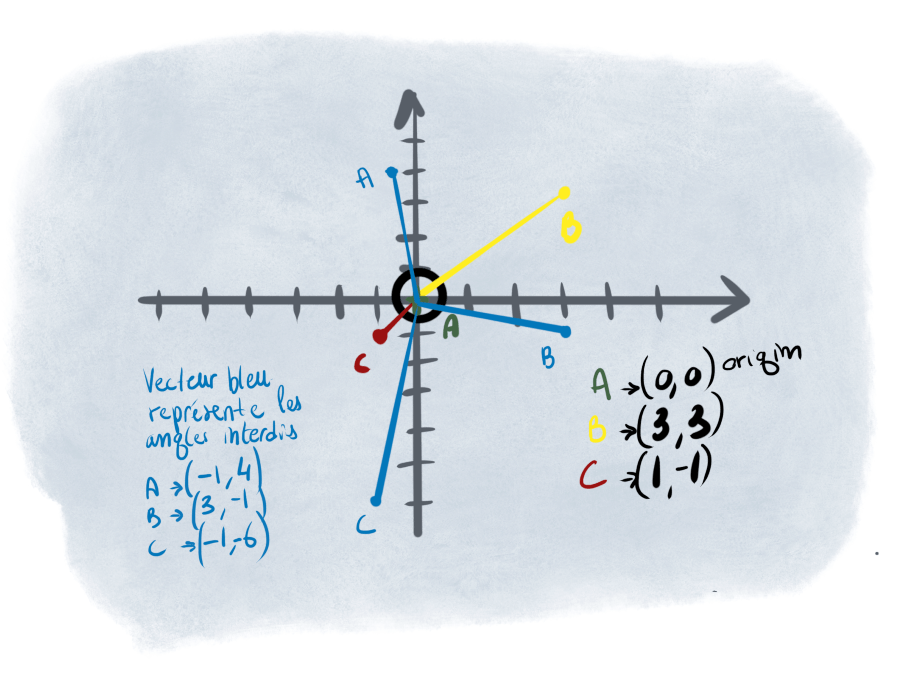 A
B
A
C
B
C
Vecteur bleu
représente les
angles interdis
A → (-1, 4)
B → (3, -1)
C → (-1, -6)
A → (0,0) origim
B → (3, 3)
C → (1, -1)